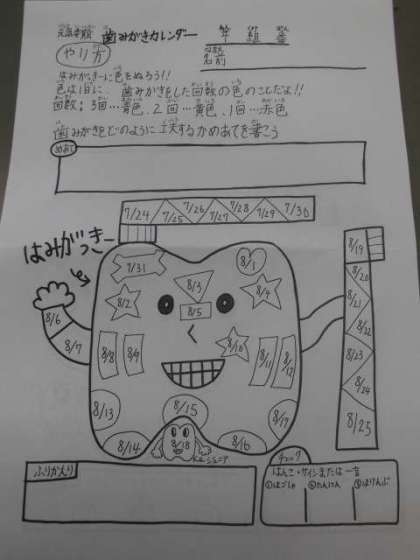 歯みがきカレンダー
年 組 番
名前
やり方
はみがっきーに色をぬろう!!
色は1日に、歯みがきをした回数の色のことだよ!!
回数:3回…青色、2回…黄色、1回…赤色
歯みがきをどのように工夫するかめあてを書こう
めあて
7/24 7/25 7/26 7/27 7/28 7/29 7/30
はみがっきー
7/31 8/1
8/2 8/3 8/4
8/5
8/6
8/7
8/8 8/9 8/10 8/11 8/12
8/13 8/15 8/17
8/14 8/18 8/16
ジュニア
8/19
8/20
8/21
8/22
8/23
8/24
8/25
ふりかえり
チェック
はんこ・サインまたは一言
①ほごしゃ ②たんにん ③ほけんぶ